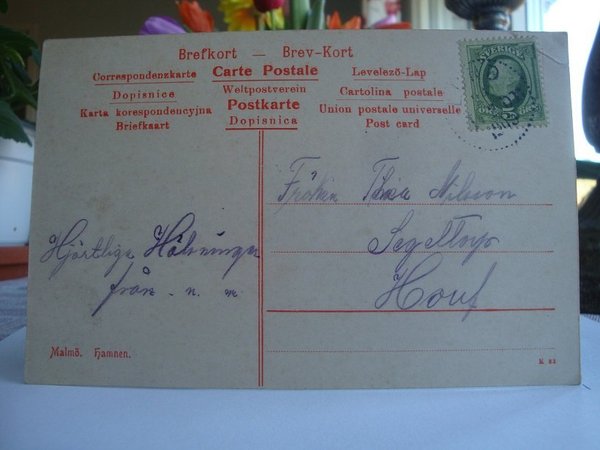 Brefkort — Brev-Kort
Correspondenzkarte Carte Postale Levelező-Lap
Dopisnice Weltpostverein Cartolina postale
Karta korespondencyjna Postkarte Union postale universelle
Briefkaart Dopisnica Post card
SVERIGE
Fröken Nilsson
Segeltorp
Hjärtliga Hälsningar
från . n. m.
Malmö. Hamnen.
K 83